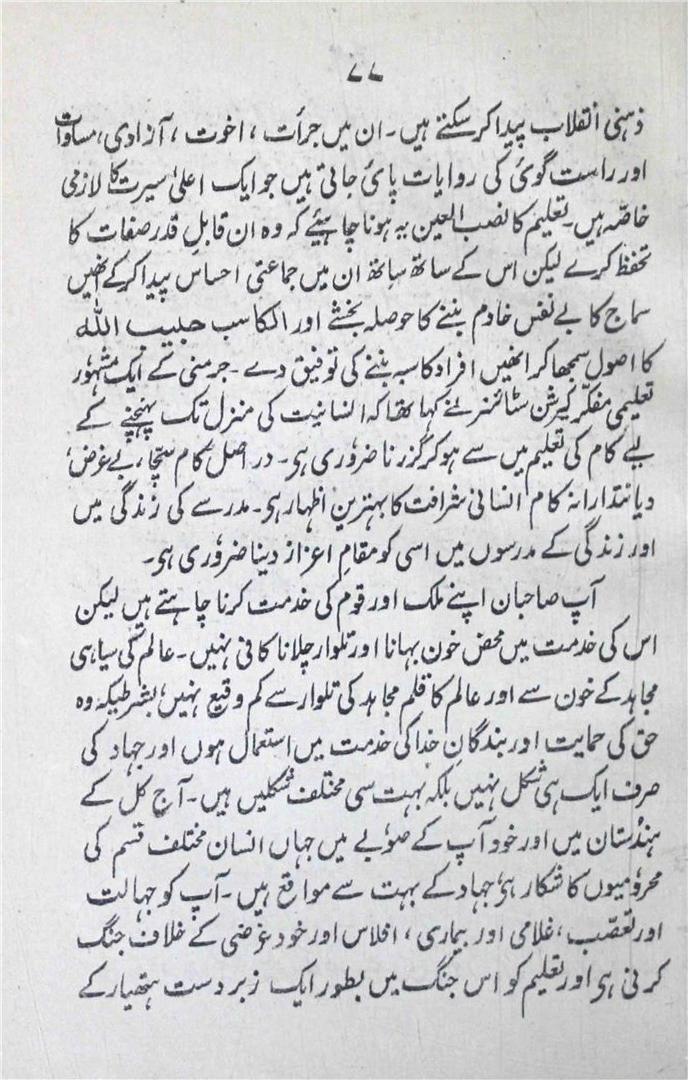 ۷۷
ذہنی انقلاب پیدا کر سکتے ہیں۔ ان میں جرأت، اخوت، آزادی، مساوات
اور راست گوئی کی روایات پائی جاتی ہیں جو ایک اعلیٰ سیرت کا لازمی
خاصّہ ہیں۔ تعلیم کا نصب العین یہ ہونا چاہیئے کہ وہ ان قابلِ قدر صفات کا
تحفظ کرے لیکن اس کے ساتھ ساتھ ان میں جماعتی احساس پیدا کر کے انھیں
سماج کا بے نفس خادم بننے کا حوصلہ بخشے اور الکاسب حبیب اللہ
کا اصول سمجھا کر انھیں افراد کاسبہ بننے کی توفیق دے۔ جرمنی کے ایک مشہور
تعلیمی مفکّر کرشن سٹائنر نے کہا تھا کہ انسانیت کی منزل تک پہنچنے کے
لیے کام کی تعلیم میں سے ہو کر گزرنا ضروری ہی۔ در اصل کام سچا، بے غرض،
دیانتدارانہ کام انسانی شرافت کا بہترین اظہار ہی۔ مدرسے کی زندگی میں
اور زندگی کے مدرسوں میں اسی کو مقامِ اعزاز دینا ضروری ہی۔
آپ صاحبان اپنے ملک اور قوم کی خدمت کرنا چاہتے ہیں لیکن
اس کی خدمت میں محض خون بہانا اور تلوار چلانا کافی نہیں۔ عالم کی سیاہی
مجاہد کے خون سے اور عالم کا قلم مجاہد کی تلوار سے کم وقیع نہیں، بشرطیکہ وہ
حق کی حمایت اور بندگانِ خدا کی خدمت میں استعمال ہوں اور جہاد کی
صرف ایک ہی شکل نہیں بلکہ بہت سی مختلف شکلیں ہیں۔ آج کل کے
ہندُستان میں اور خود آپ کے صوبے میں جہاں انسان مختلف قسم کی
محرومیوں کا شکار ہی، جہاد کے بہت سے مواقع ہیں۔ آپ کو جہالت
اور تعصّب، غلامی اور بیماری، افلاس اور خود غرضی کے خلاف جنگ
کرنی ہی اور تعلیم کو اس جنگ میں بطور ایک زبردست ہتھیار کے